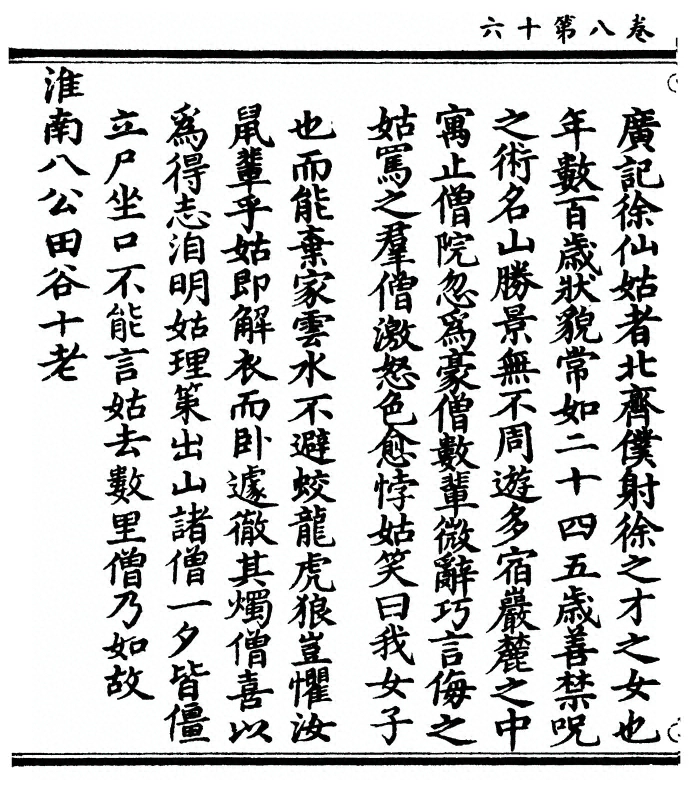 卷八第十六
廣記徐仙姑者北齊僕射徐之才之女也
年數百歲狀貌常如二十四五歲善禁呪
之術名山勝景無不周遊多宿巖麓之中
寓止僧院忽爲豪僧數輩微辭巧言侮之
姑罵之羣僧激怒色愈悖姑笑曰我女子
也而能棄家雲水不避蛟龍虎狼豈懼汝
鼠輩乎姑即解衣而卧遽徹其燭僧喜以
爲得志洎明姑理策出山諸僧一夕皆僵
立尸坐口不能言姑去數里僧乃如故
淮南八公田谷十老